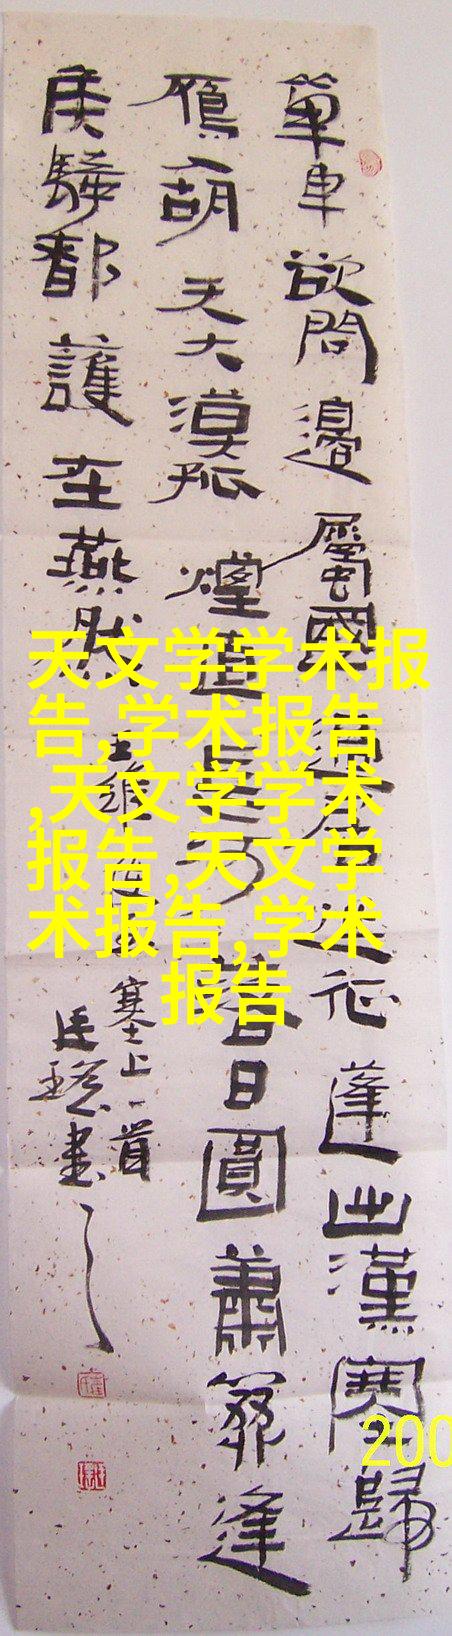 單車欲問邊屬國過居延征蓬出漢塞歸
鴈入胡天大漠孤煙直長河日圓蕭關逢
候騎都護在燕然
王維使至塞上一首
書
天文学学术报
告,学术报告
,天文学学术
报告,天文学
术报告,学术
报告
200